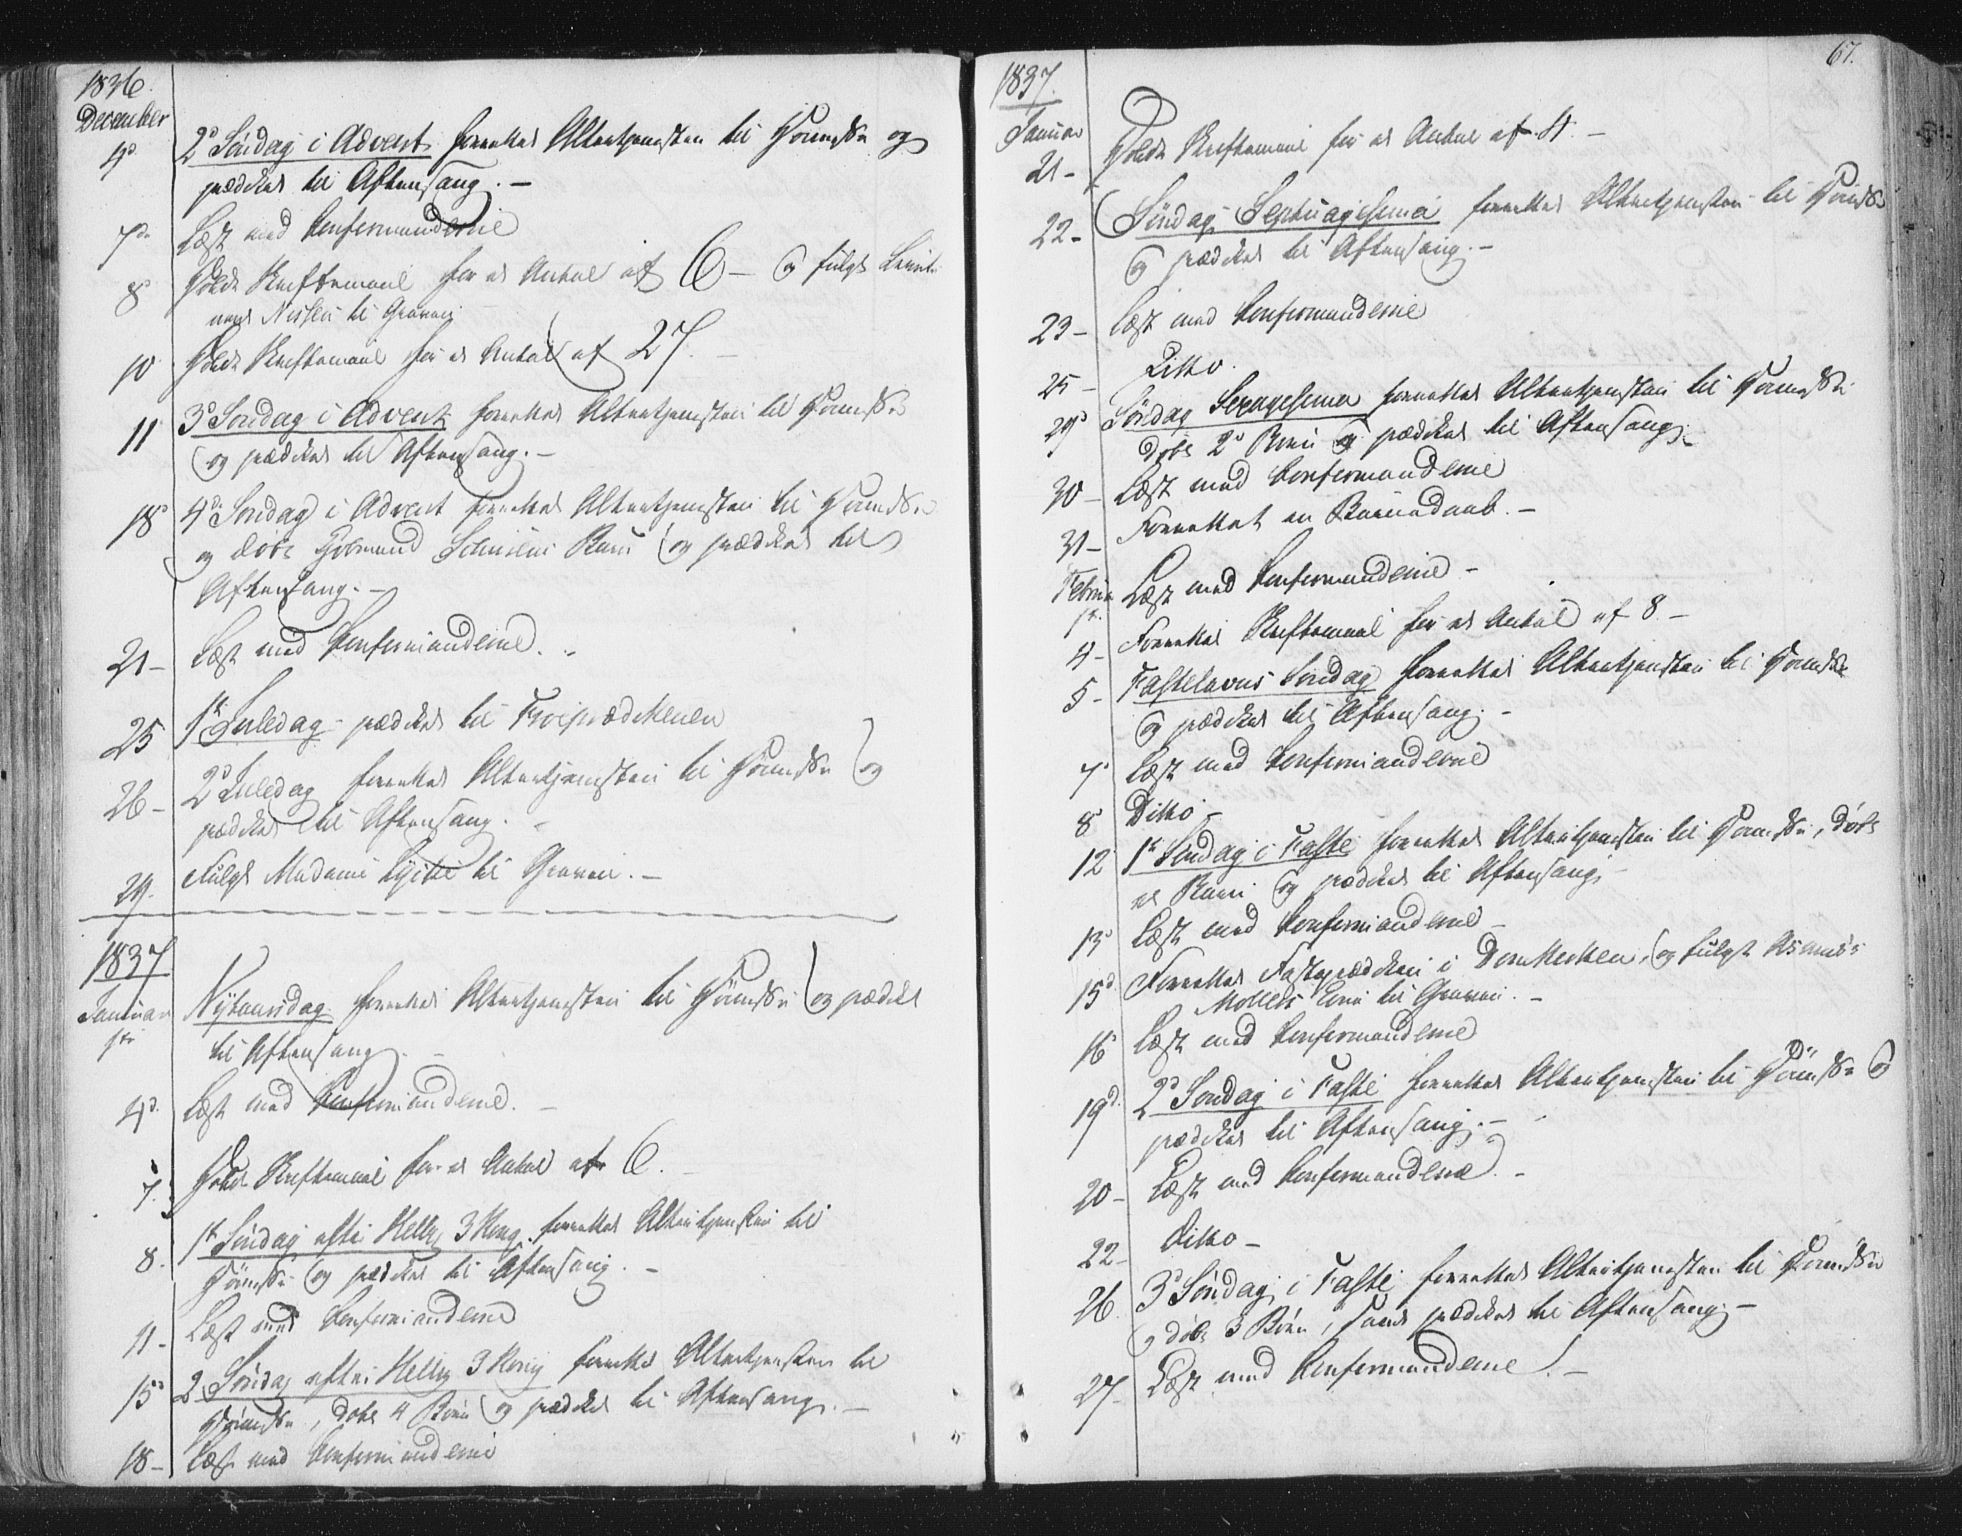 1836.
December
4d 2d Søndag i Advent forrettet Altertjenesten til Høimesse og
prædiket til Aftensang. –
7de Læst med Confirmanderne
8 Holdt Skriftemaal for et Antal af 6 – og fulgt
Nissen til Graven
10 Holdt Skriftemaal for et Antal af 27. –
11 3d Søndag i Advent forrettet Altertjenesten til Høimesse
og prædiket til Aftensang. –
18d 4de Søndag i Advent forrettet Altertjenesten til Høimesse
og døbt Barn og prædiket til
Aftensang. –
21 – Læst med Confirmanderne. –
25 1st Juledag – prædiket til Froeprædikenen
26 – 2d Juledag forrettet Altertjenesten til Høimesse og
prædiket til Aftensang. –
29. Fulgt Madame til Graven. –
1837
Januar
1ste Nytaarsdag forrettet Altertjenesten til Høimesse og prædiket
til Aftensang. –
4d. Læst med Confirmanderne. –
7. Holdt Skriftemaal for et Antal af 6. –
8. 1st Søndag efter Hellig 3 Kong. forrettet Altertjenesten til
Høimesse og prædiket til Aftensang. –
11 – Læst med Confirmanderne
15d 2 Søndag efter Hellig 3 Kong forrettet Altertjenesten til
Høimesse, døbt 4 Børn og prædiket til Aftensang. –
18 – Læst med Confirmanderne
67.
1837.
Januar
21 – Holdt Skriftemaal for et Antal af 4. –
22 – Søndag Septuagesima forrettet Altertjenesten til Høimesse
og prædiket til Aftensang. –
23 – Læst med Confirmanderne
25 – Ditto.
29d Søndag Sexagesima forrettet Altertjenesten til Høimesse
døbt 2 Børn og prædiket til Aftensang. –
30 – Læst med Confirmanderne
31 – Forrettet en Barnedaab. –
Februar
1st. Læst med Confirmanderne –
4 – Forrettet Skriftemaal for et Antal af 8. –
5 – Fastelavns Søndag forrettet Altertjenesten til Høimesse
og prædiket til Aftensang. –
7d Læst med Confirmanderne
8 Ditto –
12 1st Søndag i Faste forrettet Altertjenesten til Høimesse, døbt
et Barn og prædiket til Aftensang. –
13d Læst med Confirmanderne –
15d. Forrettet Fasteprædiken i Domkirken, og fulgt
Mollers til Graven. –
16d Læst med Confirmanderne
19d. 2d Søndag i Faste forrettet Altertjenesten til Høimesse og
prædiket til Aftensang. –
20 – Læst med Confirmanderne. –
22 – Ditto –
26 3d Søndag i Faste forrettet Altertjenesten til Høimesse
og døbt 3 Børn, samt prædiket til Aftensang. –
27 – Læst med Confirmanderne. –